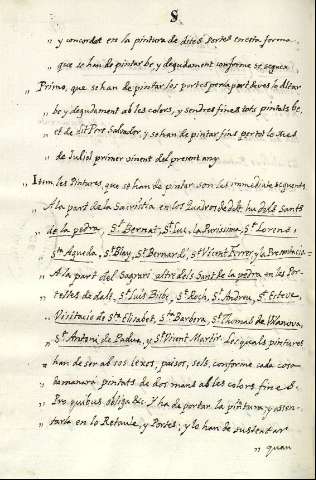 8.
" y concordat en la pintura de dites Portes en esta forma
" que se han de pintar be y degudament conforme se segueix
" Primo, que se han de pintar les portes per la part devers lo Altar
" be y degudament ab les colors, y cendres fines tots pintats be,
" et de dit Pror Salvador, y se han de pintar fins per tot lo Mes
" de Juliol primer vinent del present any.
" Item les Pintures, que se han de pintar son les immediate seguents
" A la part de la Sacristia en los Quadros de dalt ha dels Sants
" de la pedra, St. Bernat, St. Luc, la Purissima, St. Lorens,
" Sta. Agueda, St. Blay, St. Bernardí, St. Vicent Ferrer, y la Presentacia=
" A la part del Sagrari ultra dels Sants de la pedra en les Por-
" telles de dalt, St. Luis Bisbe, St. Roch, St. Andreu, St. Esteve,
" Visitacio de Sta. Elisabet, Sta. Barbera, St. Thomas de Vilanova,
" St. Antoni de Padua, y St. Vicent Martir. Les quals pintures
" han de ser ab sos lexos, paisos, sels, conforme cada cosa
" demanará pintats de dos mans ab les colors fine &.
" Pro quibus obliga &c. Y ha de portar la pintura y assen-
" tarla en lo Retaule, y Portes; y lo han de sustentar
" quan